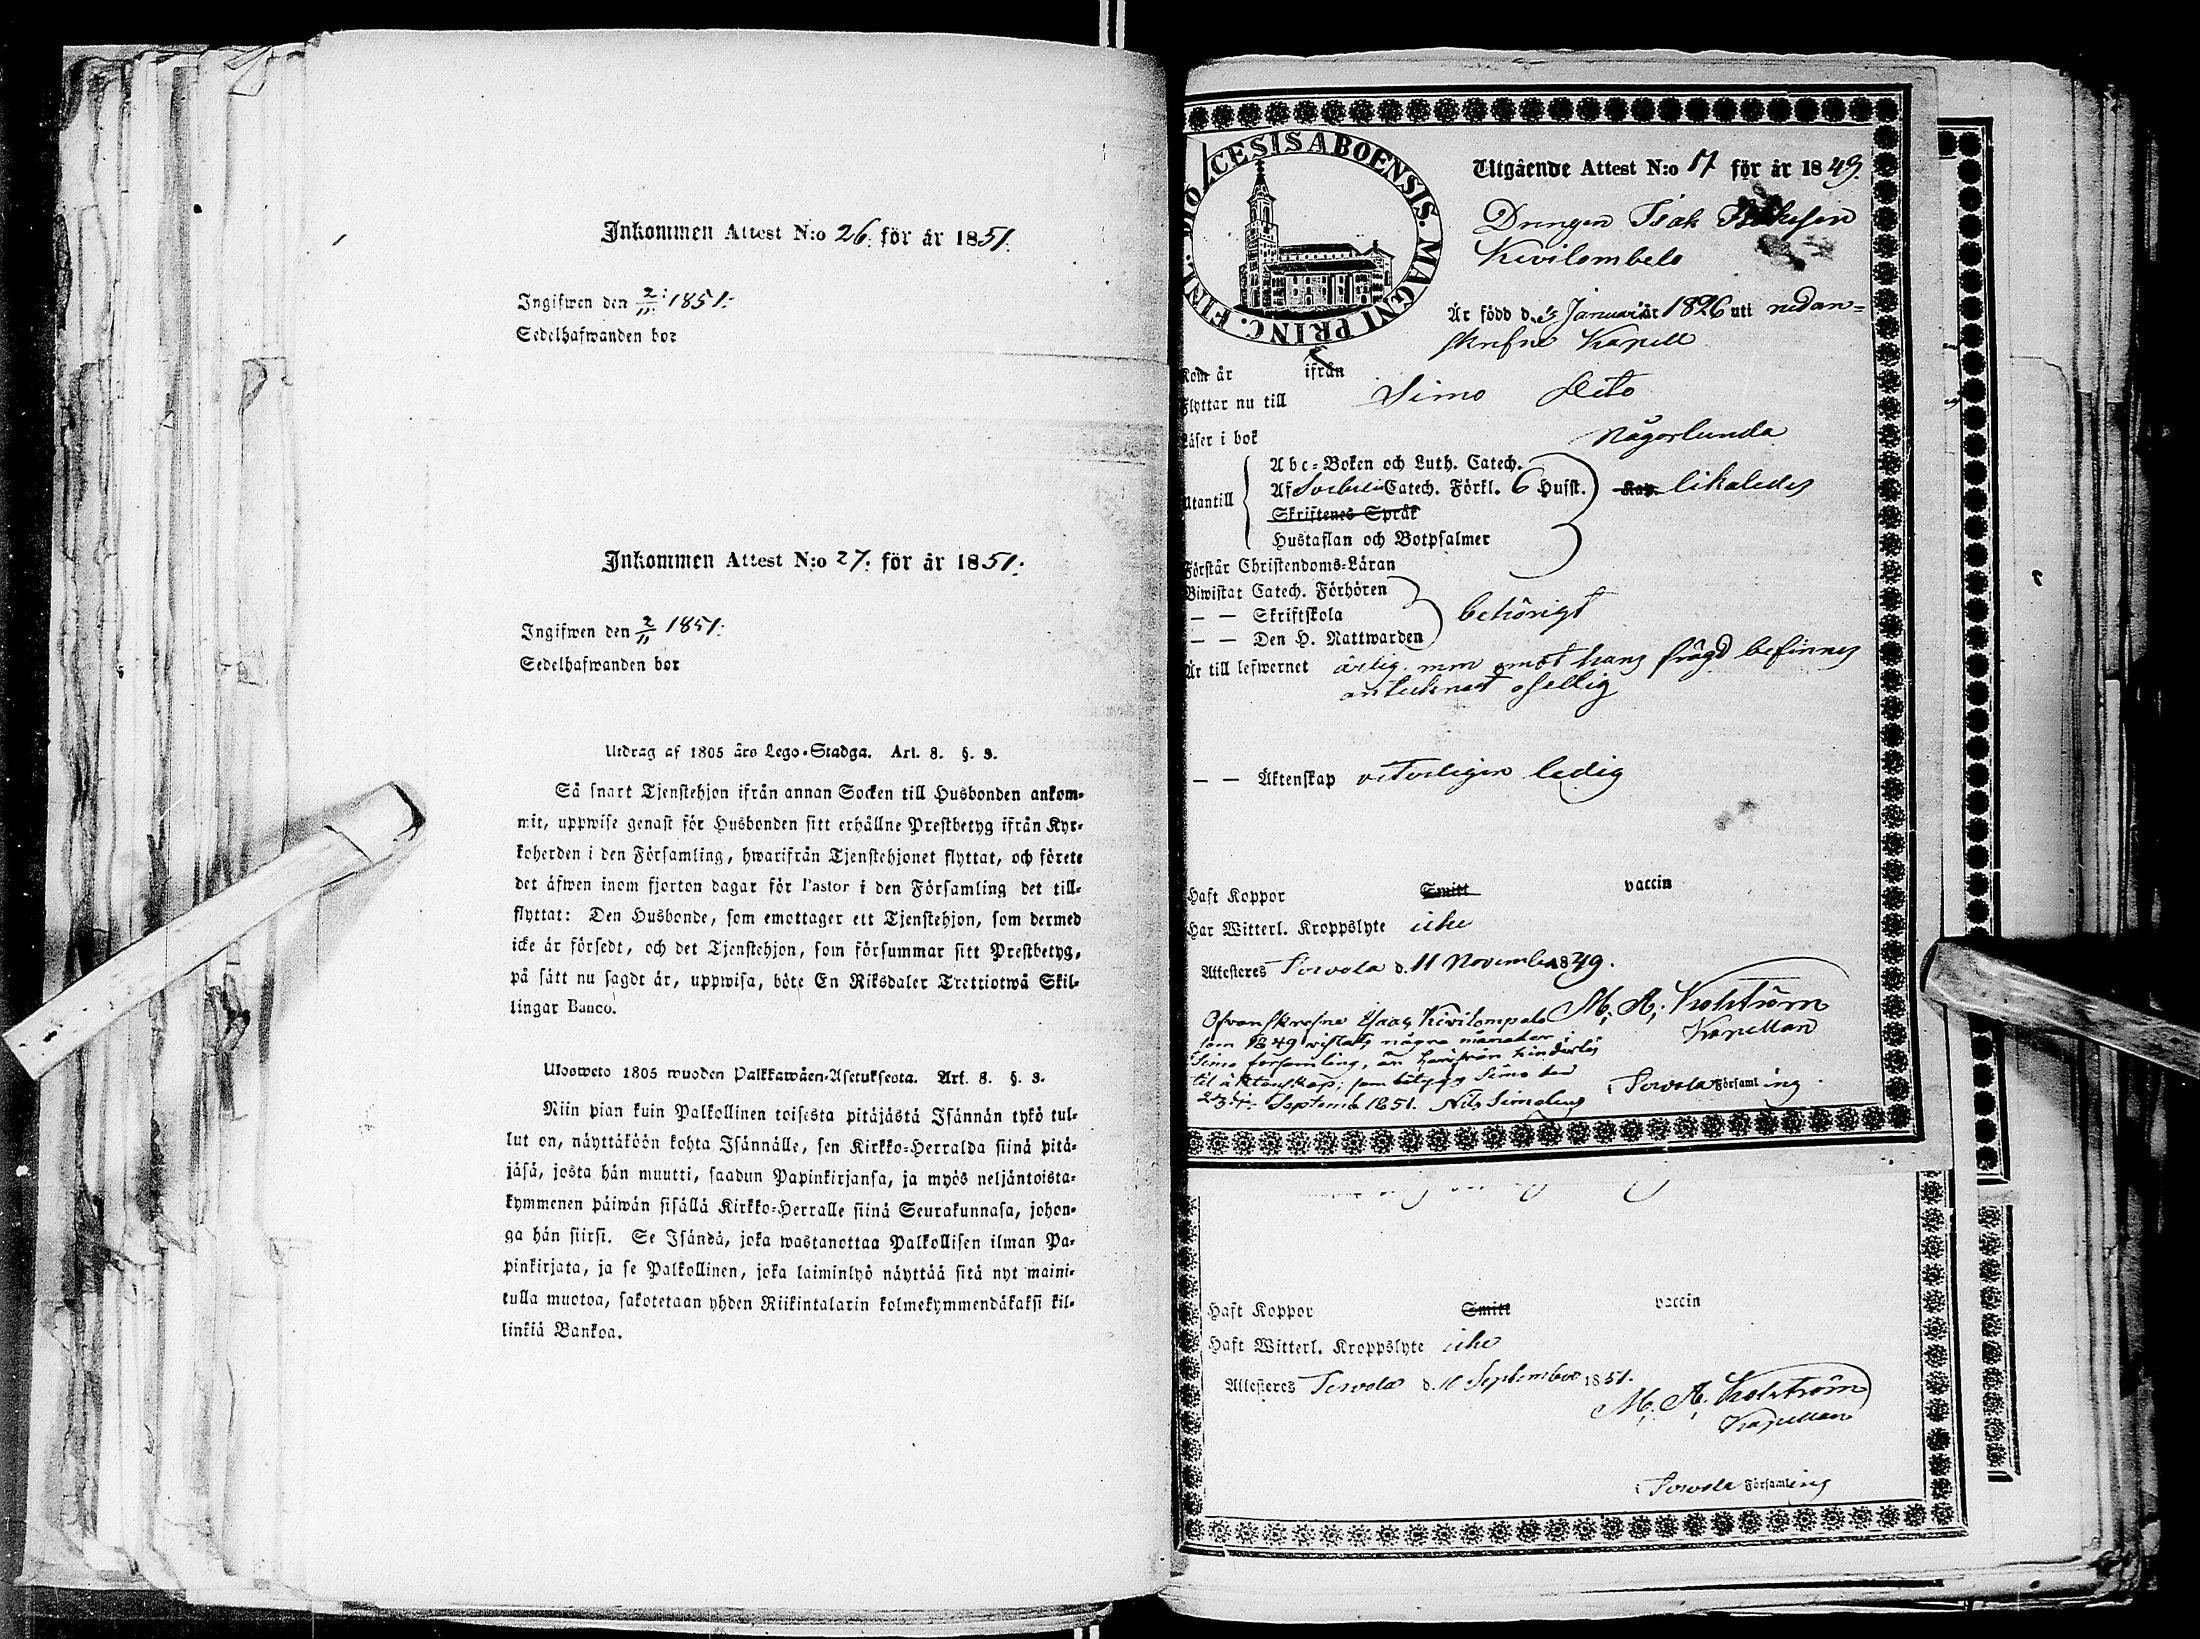 Inkommen Attest N:o 26. för år 1851.
Ingifwen den 2/11 1851.
Sedelhafwanden bor
Inkommen Attest N:o 27. för år 1851.
Ingifwen den 2/11 1851.
Sedelhafwanden bor
Utdrag af 1805 års Lego-Stadga. Art. 8. §. 3.
Så snart Tjenstehjon ifrån annan Socken till Husbonden ankom-
mit, uppwise genast för Husbonden sitt erhållne Prestbetyg ifrån Kyr-
koherden i den Församling, hwarifrån Tjenstehjonet flyttat, och förete
det äfwen inom fjorton dagar för Pastor i den Församling det till-
flyttat: Den Husbonde, som emottager ett Tjenstehjon, som dermed
icke är försedt, och det Tjenstehjon, som försummar sitt Prestbetyg,
på sätt nu sagdt är, uppwisa, böte En Riksdaler Trettiotwå Skil-
lingar Banco.
Ulosweto 1805 wuoden Palkkawäen-Asetuksesta. Art. 8. §. 3.
Niin pian kuin Palkollinen toisesta pitäjästä Isännän tykö tul-
lut on, näyttäköön kohta Isännälle, sen Kirkko-Herralda siinä pitä-
jäsä, josta hän muutti, saadun Papinkirjansa, ja myös neljäntoista-
kymmenen päiwän sisällä Kirkko-Herralle siinä Seurakunnasa, johon-
ga hän siirsi. Se Isändä, joka wastanottaa Palkollisen ilman Pa-
pinkirjata, ja se Palkollinen, joka laiminlyö näyttää sitä nyt maini-
tulla muotoa, sakotetaan yhden Riikintalarin kolmekymmendäkaksi kil-
linkiä Bankoa.
DIOECESIS ABOENSIS. MAGNI PRINC. FINL.
Utgående Attest N:o 17 för år 1849.
Drengen Isak
Kivilombelo
Är född d. Januarii år 1826 uti nedan-
skrefne Kapell
Kom år ifrån
Flyttar nu till Simo
Läser i bok någorlunda
Abc-Boken och Luth. Catech.
Utantill Af Catech. Förkl. 6 Hufst. likaledes
Skriftenes Språk
Hustaflan och Botpsalmer
Förstår Christendoms-Läran
Biwistat Catech. Förhören
— — Skriftskola behörigt
— — Den H. Nattwarden
Är till lefwernet ärlig, mm emot hans frägd befinnes
antecknadt
— — Äktenskap veterligen ledig
Haft Koppor Smitt vaccin
Har Witterl. Kroppslyte icke
Attesteres Terwola d. 11 November 1849.
M. A. Kolström
Kapellan
Ofvanskrefne Isaac Kivilompelo
som 1849 vistats några månader i
Simo församling, är härifrån hinderlös
til äktenskap; som betygas Simo den
Septemb. 1851. Nils Simelius
i Terwola Församling.
Haft Koppor Smitt vaccin
Haft Witterl. Kroppslyte icke
Attesteres Terwola d. September 1851.
M. A. Kolström
Kapellan
i Terwola Församling